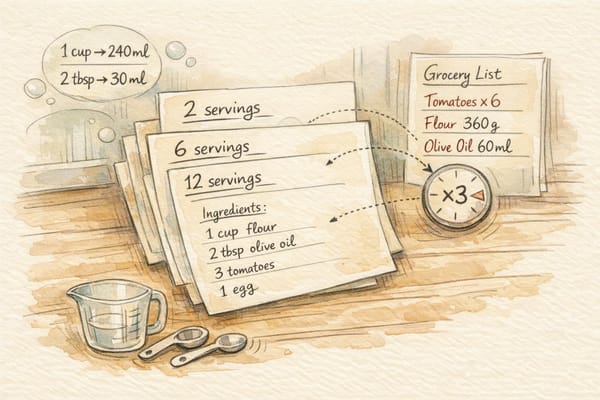 1 cup → 240ml
2 tbsp → 30ml
2 servings
6 servings
12 servings
Ingredients:
1 cup flour
2 tbsp olive oil
3 tomatoes
1 egg
Grocery List
Tomatoes x 6
Flour 360g
Olive Oil 60ml
x3